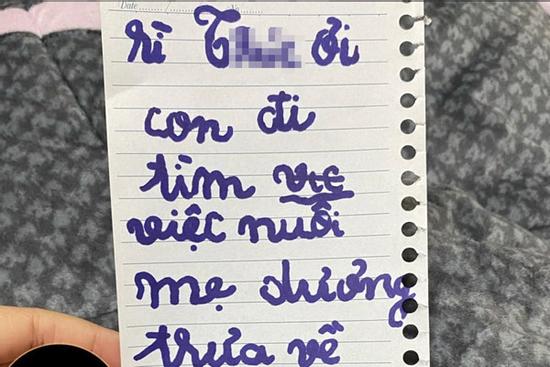 Date No.
hì T ơi
con đi
tìm vtc
việc nuôi
mẹ dương
trưa về